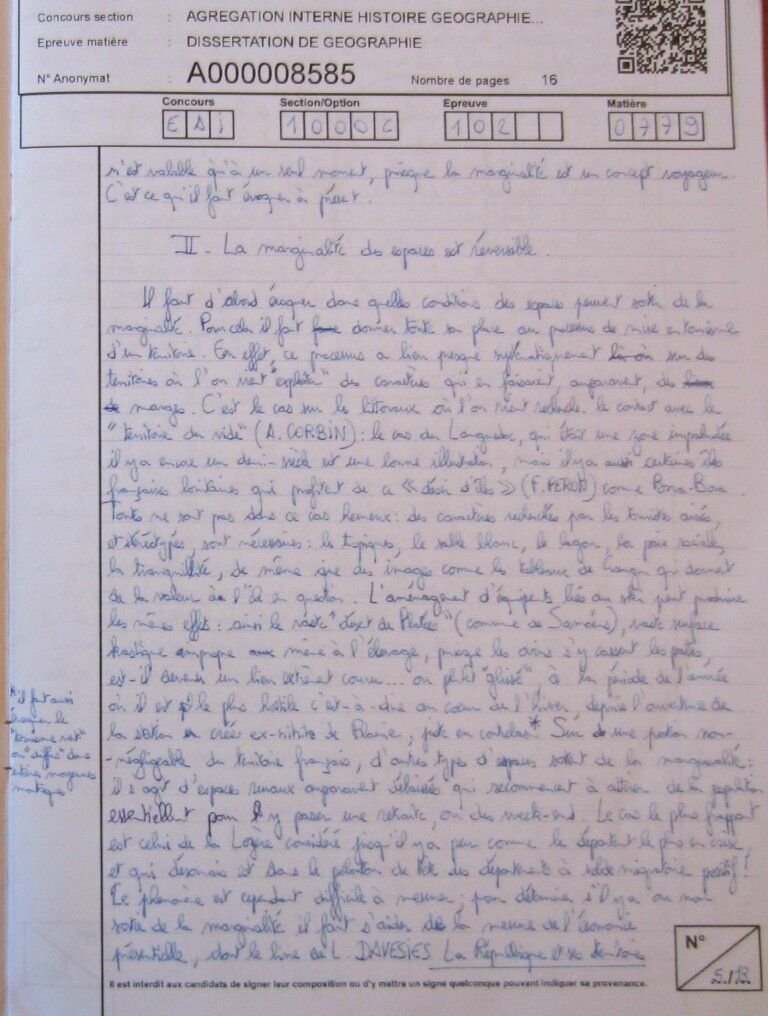 Concours section : AGREGATION INTERNE HISTOIRE GEOGRAPHIE...
Epreuve matière : DISSERTATION DE GEOGRAPHIE
N° Anonymat : A000008585 Nombre de pages : 16
Concours Section/Option Epreuve Matière
E A I 1 0 0 0 C 1 0 2 0 7 7 9
n'est valable qu'à un seul moment, puisque la marginalité est un concept voyageur.
C'est ce qu'il faut évoquer à présent.
II - La marginalité des espaces est réversible.
Il faut d'abord évoquer dans quelles conditions des espaces peuvent sortir de la
marginalité. Pour cela il faut donner toute sa place au processus de mise en tourisme
d'un territoire. En effet, ce processus a lieu presque systématiquement sur des
territoires où l'on vient "exploiter" des caractères qui en faisaient, auparavant, des
marges. C'est le cas sur les littoraux où l'on vient rechercher le contact avec le
"territoire du vide" (A. CORBIN) : le cas du Languedoc, qui était une zone impaludée
il y a encore un demi-siècle est une bonne illustration, mais il y a aussi certaines îles
françaises lointaines qui profitent de ce « désir d'îles » (F. PERON) comme Bora-Bora.
Toutes ne sont pas dans ce cas heureux : des caractères recherchés par les touristes aisés,
et stéréotypés, sont nécessaires : les tropiques, le sable blanc, le lagon, la paix sociale,
la tranquillité, de même que des images comme les tableaux de Gauguin qui donnent
de la valeur à l'île en question. L'aménagement d'équipements liés au ski peut produire
les mêmes effets : ainsi le vaste "désert de Platé" (commune de Samoëns), vaste surface
karstique impropre même à l'élevage, puisque les ovins s'y cassent les pattes,
est-il devenu un lieu extrêmement couru... ou plutôt "glissé", à la période de l'année
où il est le plus hostile c'est-à-dire au coeur de l'hiver, depuis l'ouverture de
la station créée ex-nihilo de Flaine, juste en contrebas.* Sur une portion non-
*il faut aussi
évoquer le
"tourisme vert"
ou "diffus" dans
certaines moyennes
montagnes
-négligeable du territoire français, d'autres types d'espaces sortent de la marginalité :
il s'agit d'espaces ruraux auparavant délaissés qui recommencent à attirer de la population
essentiellement pour y passer une retraite, ou des week-end. Le cas le plus frappant
est celui de la Lozère considéré jusqu'il y a peu comme le département le plus en crise,
et qui désormais est dans le peloton de tête des départements à solde migratoire positif !
Le phénomène est cependant difficile à mesurer ; pour déterminer s'il y a ou non
sortie de la marginalité il faut s'aider de la mesure de l'économie
présentielle, dont le livre de L. DAVEZIES La République et ses territoires
Il est interdit aux candidats de signer leur composition ou d'y mettre un signe quelconque pouvant indiquer sa provenance.
N° 5/13